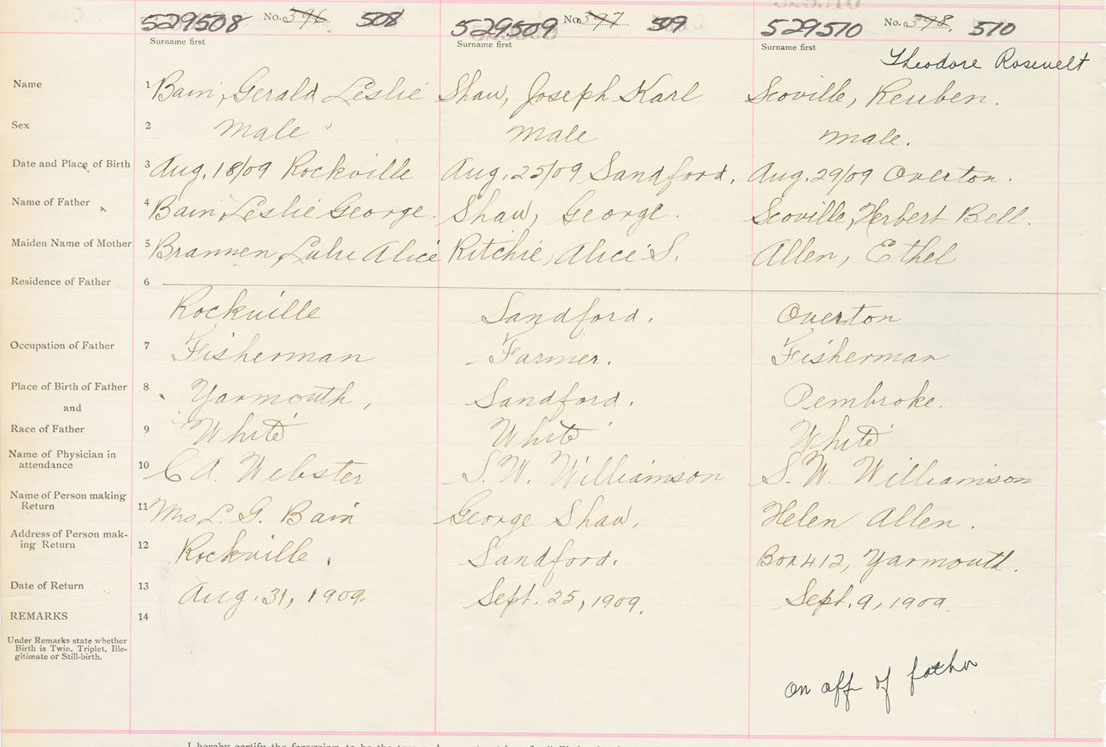 529508 No. 376 508 529509 No. 377 509 529510 No. 378. 510
Surname first Surname first Surname first
Theodore Rosevelt
Name 1 Bain, Gerald Leslie Shaw, Joseph Karl Scoville, Reuben.
Sex 2 Male Male Male.
Date and Place of Birth 3 Aug. 18/09 Rockville Aug. 25/09 Sandford. Aug. 29/09 Overton.
Name of Father 4 Bain, Leslie George. Shaw, George. Scoville, Herbert Bell.
Maiden Name of Mother 5 Brannen, Lulu Alice Ritchie, Alice S. Allen, Ethel
Residence of Father 6
Rockville Sandford. Overton
Occupation of Father 7 Fisherman Farmer. Fisherman
Place of Birth of Father 8 Yarmouth, Sandford. Pembroke.
and
Race of Father 9 White White White
Name of Physician in
attendance 10 C A. Webster S. W. Williamson S. W. Williamson
Name of Person making
Return 11 Mrs L. G. Bain George Shaw. Helen Allen.
Address of Person mak-
ing Return 12 Rockville. Sandford. Box 412, Yarmouth.
Date of Return 13 Aug. 31, 1909. Sept. 25, 1909. Sept. 9, 1909.
REMARKS 14
Under Remarks state whether
Birth is Twin, Triplet, Ille-
gitimate or Still-birth.
on aff of father